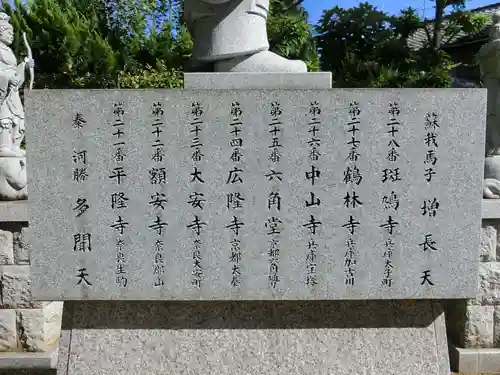 蘇我馬子 増長天
第二十八番 斑鳩寺 兵庫太子町
第二十七番 鶴林寺 兵庫加古川
第二十六番 中山寺 兵庫宝塚
第二十五番 六角堂 京都六角
第二十四番 広隆寺 京都太秦
第二十三番 大安寺 奈良大安町
第二十二番 額安寺 奈良郡山
第二十一番 平隆寺 奈良生駒
秦河勝 多聞天